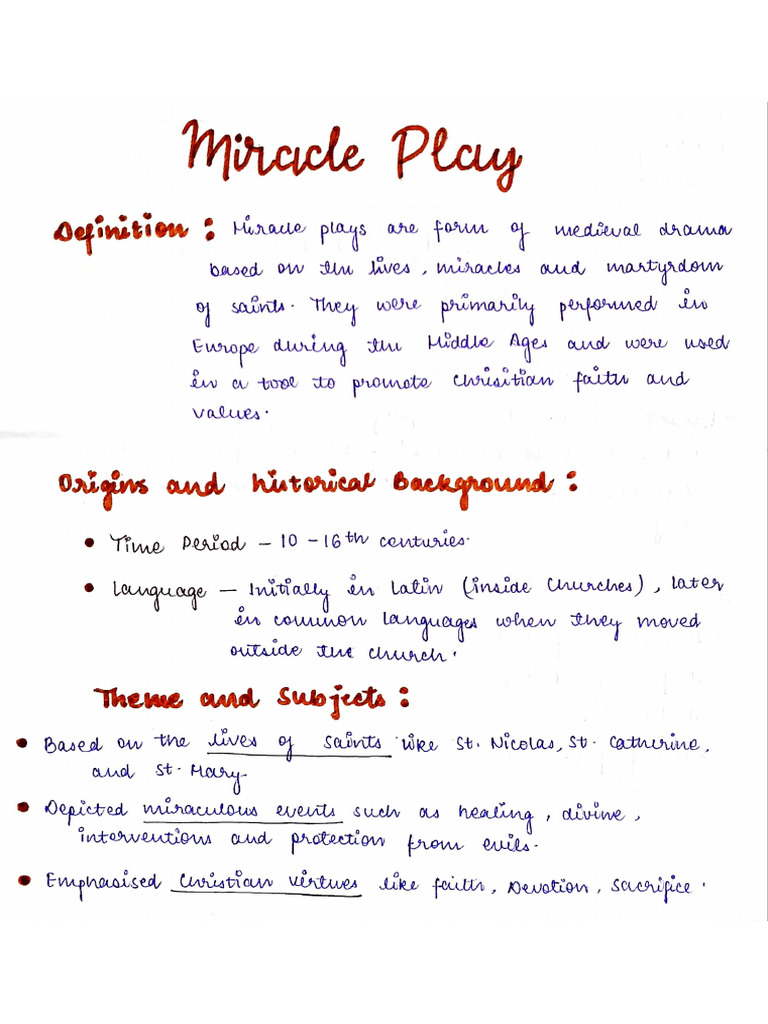 Miracle Play
Definition : Miracle plays are form of medieval drama
based on the lives, miracles and martyrdom
of saints. They were primarily performed in
Europe during the Middle Ages and were used
in a tool to promote Chrisitian faith and
values.
Origins and historical Background :
• Time Period – 10 – 16th centuries.
• Language – Initially in Latin (inside churches), later
in common languages when they moved
outside the church.
Theme and Subjects :
• Based on the lives of saints like St. Nicolas, St. Catherine,
and St. Mary.
• Depicted miraculous events such as healing, divine,
interventions and protection from evils.
• Emphasised Christian virtues like faith, Devotion, sacrifice.